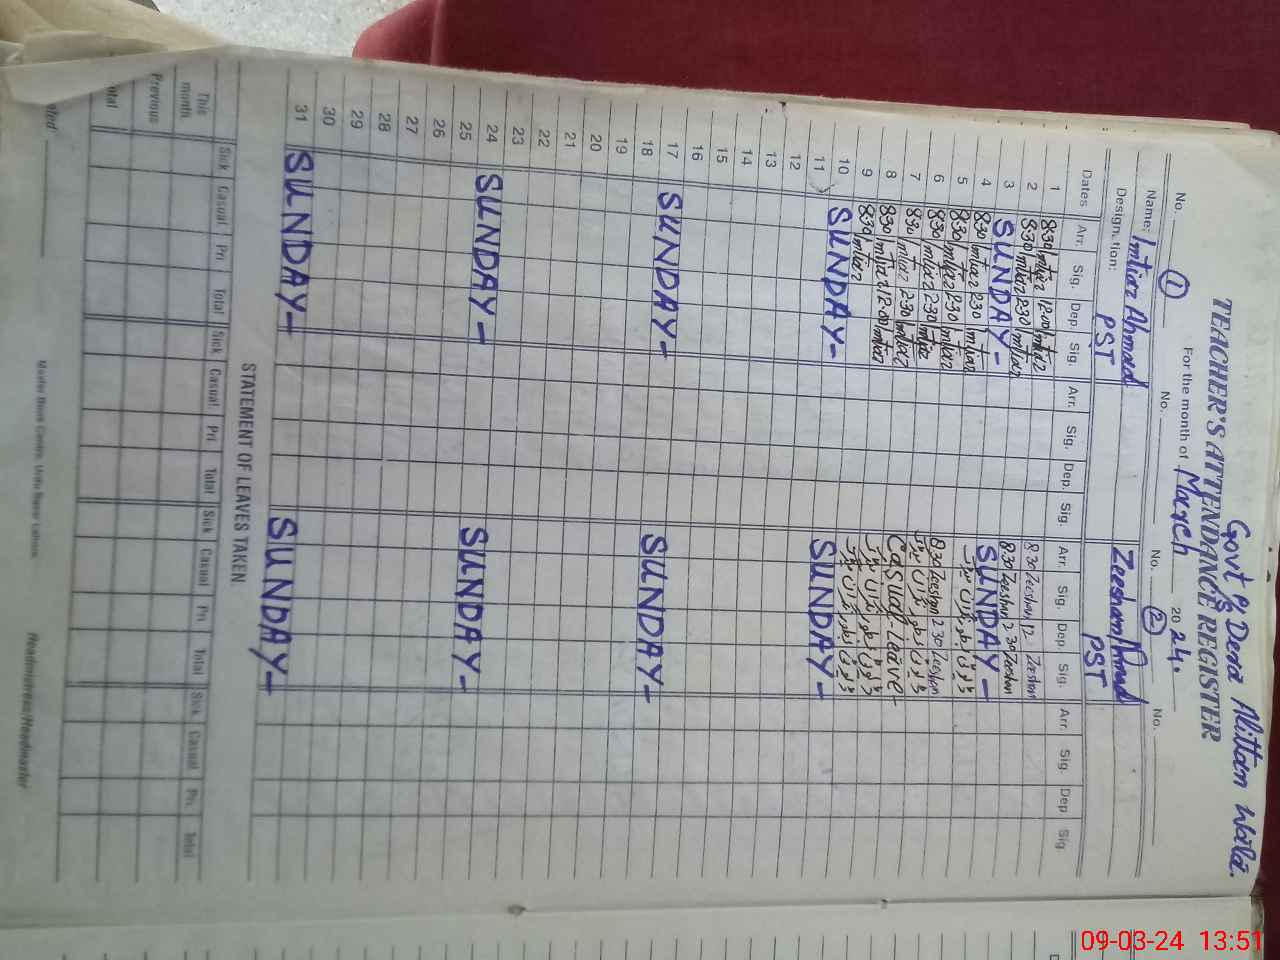 Govt P/S Dera Alittam Wala.
TEACHER'S ATTENDANCE REGISTER
For the month of March 2024.
No. ① No. No. ② No.
Name: Imtiaz Ahmad Zeeshan Ahmad
Designation: PST PST
Dates Arr. Sig. Dep. Sig. Arr. Sig. Dep. Sig. Arr. Sig. Dep. Sig. Arr. Sig. Dep Sig.
1 8:30 Imtiaz 12:00 Imtiaz 8:30 Zeeshan 12 Zeeshan
2 8:30 Imtiaz 2:30 Imtiaz 8:30 Zeeshan 2:30 Zeeshan
3 SUNDAY- SUNDAY-
4 8:30 Imtiaz 2:30 Imtiaz
5 8:30 Imtiaz 2:30 Imtiaz 8:30 Zeeshan 2:30 Zeeshan
6 8:30 Imtiaz 2:30 Imtiaz
7 8:30 Imtiaz 2:30 Imtiaz Casual-Leave-
8 8:30 Imtiaz 12:00 Imtiaz
9 8:30 Imtiaz
10 SUNDAY- SUNDAY-
11
12
13
14
15
16
17 SUNDAY- SUNDAY-
18
19
20
21
22
23
24 SUNDAY- SUNDAY-
25
26
27
28
29
30
31 SUNDAY- SUNDAY-
STATEMENT OF LEAVES TAKEN
Sick Casual Pri Total Sick Casual. Pri. Total Sick Casual Pri. Total Sick Casual Pri. Total
This month
Previous
otal
Headmistress/Headmaster
09-03-24 13:51